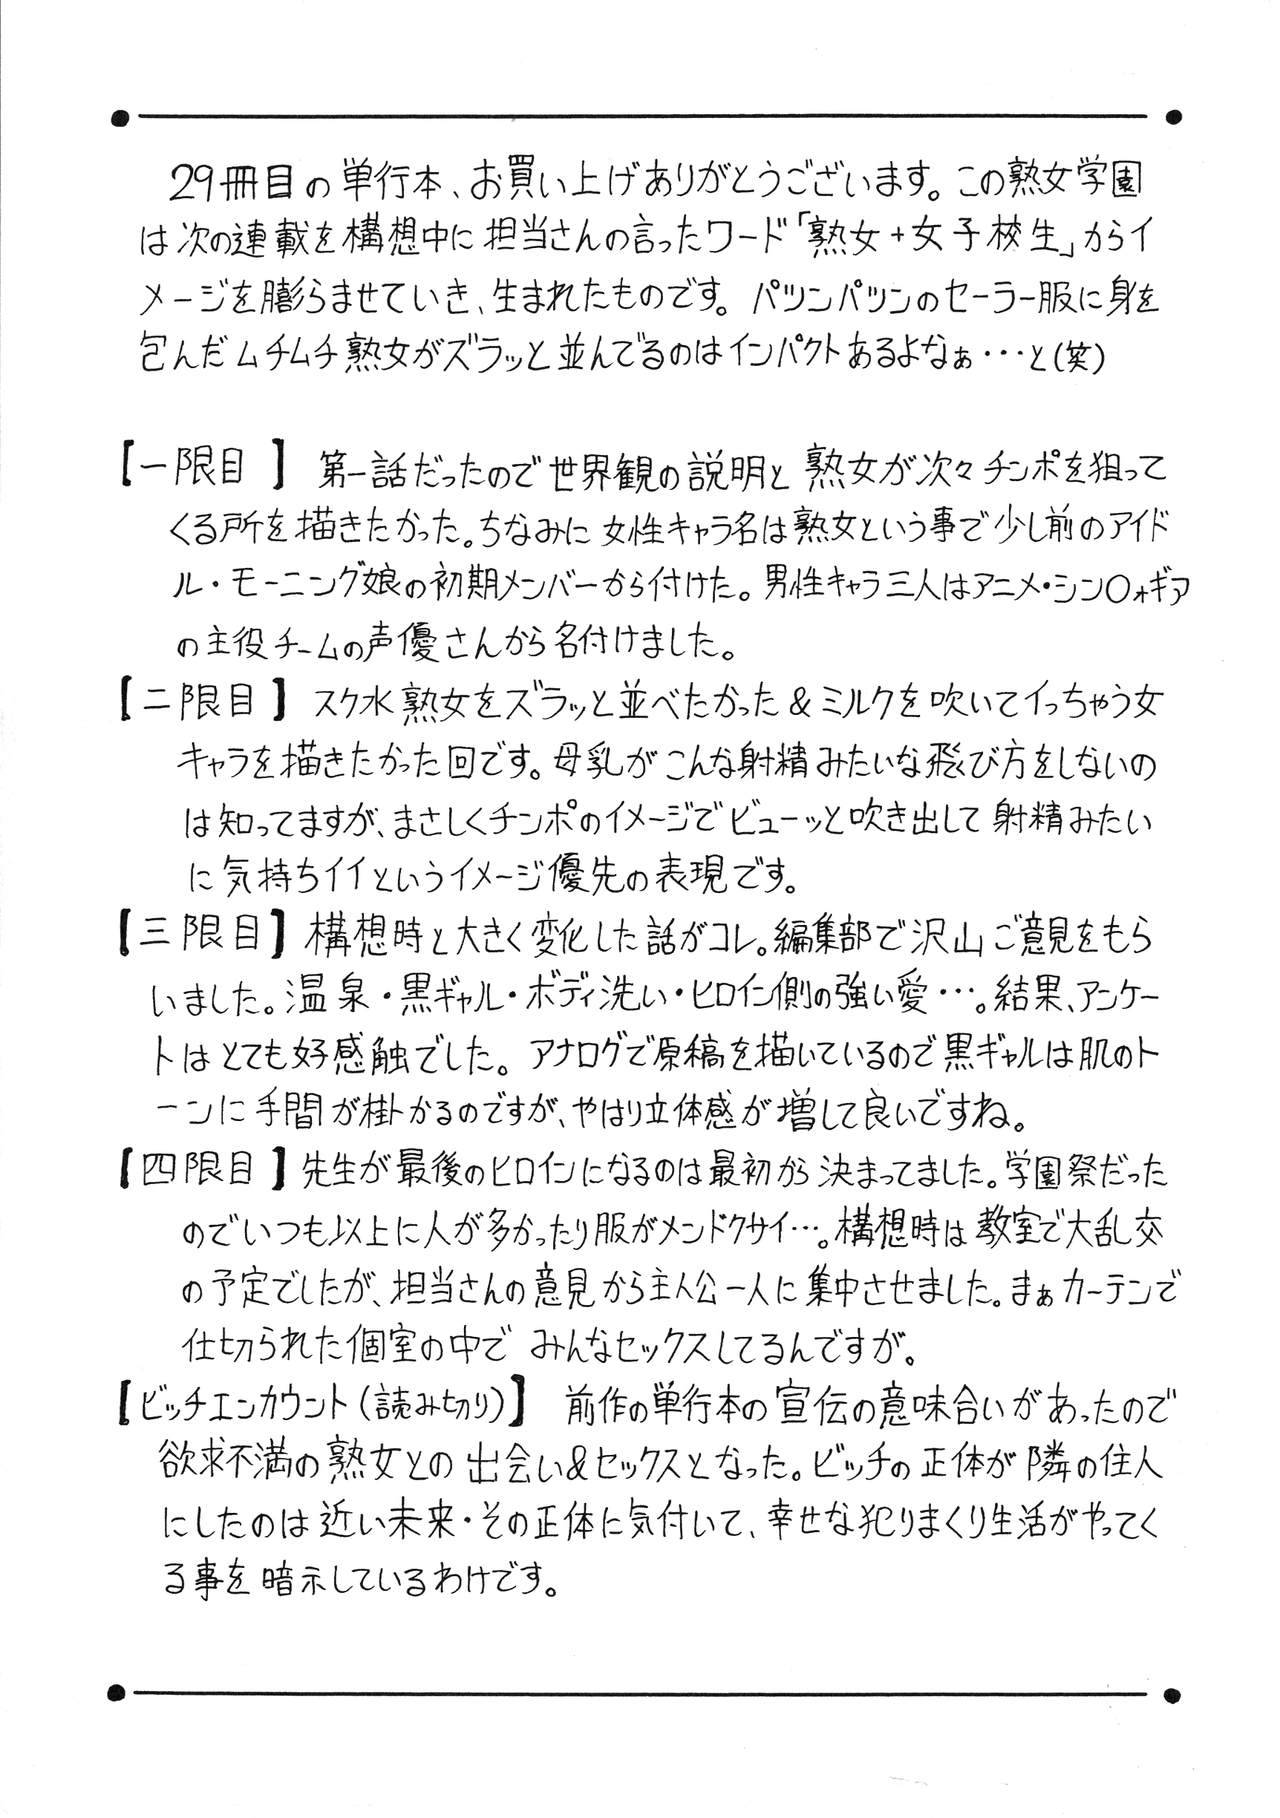 29冊目の単行本、お買い上げありがとうございます。この熟女学園
は次の連載を構想中に担当さんの言ったワード「熟女+女子校生」からイ
メージを膨らませていき、生まれたものです。パツンパツンのセーラー服に身を
包んだムチムチ熟女がズラッと並んでるのはインパクトあるよなぁ・・・と(笑)
【一限目】 第一話だったので世界観の説明と熟女が次々チンポを狙って
くる所を描きたかった。ちなみに女性キャラ名は熟女という事で少し前のアイド
ル・モーニング娘の初期メンバーから付けた。男性キャラ三人はアニメ・シン〇ォギア
の主役チームの声優さんから名付けました。
【二限目】 スク水熟女をズラッと並べたかった&ミルクを吹いてイっちゃう女
キャラを描きたかった回です。母乳がこんな射精みたいな飛び方をしないの
は知ってますが、まさしくチンポのイメージでビューッと吹き出して射精みたい
に気持ちイイというイメージ優先の表現です。
【三限目】 構想時と大きく変化した話がコレ。編集部で沢山ご意見をもら
いました。温泉・黒ギャル・ボディ洗い・ヒロイン側の強い愛・・・。結果、アンケー
トはとても好感触でした。アナログで原稿を描いているので黒ギャルは肌のト
ーンに手間が掛かるのですが、やはり立体感が増して良いですね。
【四限目】 先生が最後のヒロインになるのは最初から決まってました。学園祭だった
のでいつも以上に人が多かったり服がメンドクサイ・・・。構想時は教室で大乱交
の予定でしたが、担当さんの意見から主人公一人に集中させました。まぁカーテンで
仕切られた個室の中でみんなセックスしてるんですが。
【ビッチエンカウント(読み切り)】 前作の単行本の宣伝の意味合いがあったので
欲求不満の熟女との出会い&セックスとなった。ビッチの正体が隣の住人
にしたのは近い未来・その正体に気付いて、幸せな犯りまくり生活がやってく
る事を暗示しているわけです。